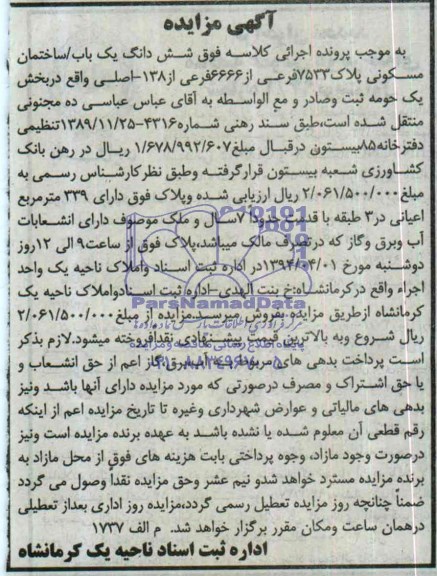 آگهی مزایده
به موجب پرونده اجرائی کلاسه فوق شش دانگ یک باب/ساختمان
مسکونی پلاک۷۵۳۳فرعی از۶۶۶۶فرعی از۱۳۸-اصلی واقع دربخش
یک حومه ثبت وصادر و مع الواسطه به آقای عباس عباسی ده مجنونی
منتقل شده است،طبق سند رهنی شماره۴۳۱۶-۱۳۸۹/۱۱/۲۵تنظیمی
دفترخانه۸۵بیستون درقبال مبلغ۱/۶۷۸/۹۹۲/۶۰۷ ریال در رهن بانک
کشاورزی شعبه بیستون قرارگرفته وطبق نظرکارشناس رسمی به
مبلغ۲/۰۶۱/۵۰۰/۰۰۰ ریال ارزیابی شده وپلاک فوق دارای ۳۳۹ مترمربع
اعیانی در۳ طبقه با قدمت حدودا ۷سال و ملک موصوف دارای انشعابات
آب وبرق وگاز که درتصرف مالک میباشد،پلاک فوق از ساعت۹ الی ۱۲روز
دوشنبه مورخ ۱۳۹۴/۰۴/۰۱در اداره ثبت اسناد واملاک ناحیه یک واحد
اجراء واقع درکرمانشاه:خ بنت الهدی-اداره ثبت اسنادواملاک ناحیه یک
کرمانشاه ازطریق مزایده بفروش میرسد.مزایده از مبلغ۲/۰۶۱/۵۰۰/۰۰۰
ریال شروع وبه بالاترین قیمت پیشنهادی نقدافروخته میشود.لازم بذکر
است پرداخت بدهی های مربوط به آب،برق،گاز اعم از حق انشعاب و
یا حق اشتراک و مصرف درصورتی که مورد مزایده دارای آنها باشد ونیز
بدهی های مالیاتی و عوارض شهرداری وغیره تا تاریخ مزایده اعم از اینکه
رقم قطعی آن معلوم شده یا نشده باشد به عهده برنده مزایده است ونیز
درصورت وجود مازاد، وجوه پرداختی بابت هزینه های فوق از محل مازاد به
برنده مزایده مسترد خواهد شدو نیم عشر وحق مزایده نقدا وصول می گردد
ضمناً چنانچه روز مزایده تعطیل رسمی گردد،مزایده روز اداری بعداز تعطیلی
درهمان ساعت ومکان مقرر برگزار خواهد شد. م الف ۱۷۳۷
اداره ثبت اسناد ناحیه یک کرمانشاه
ParsNamadData